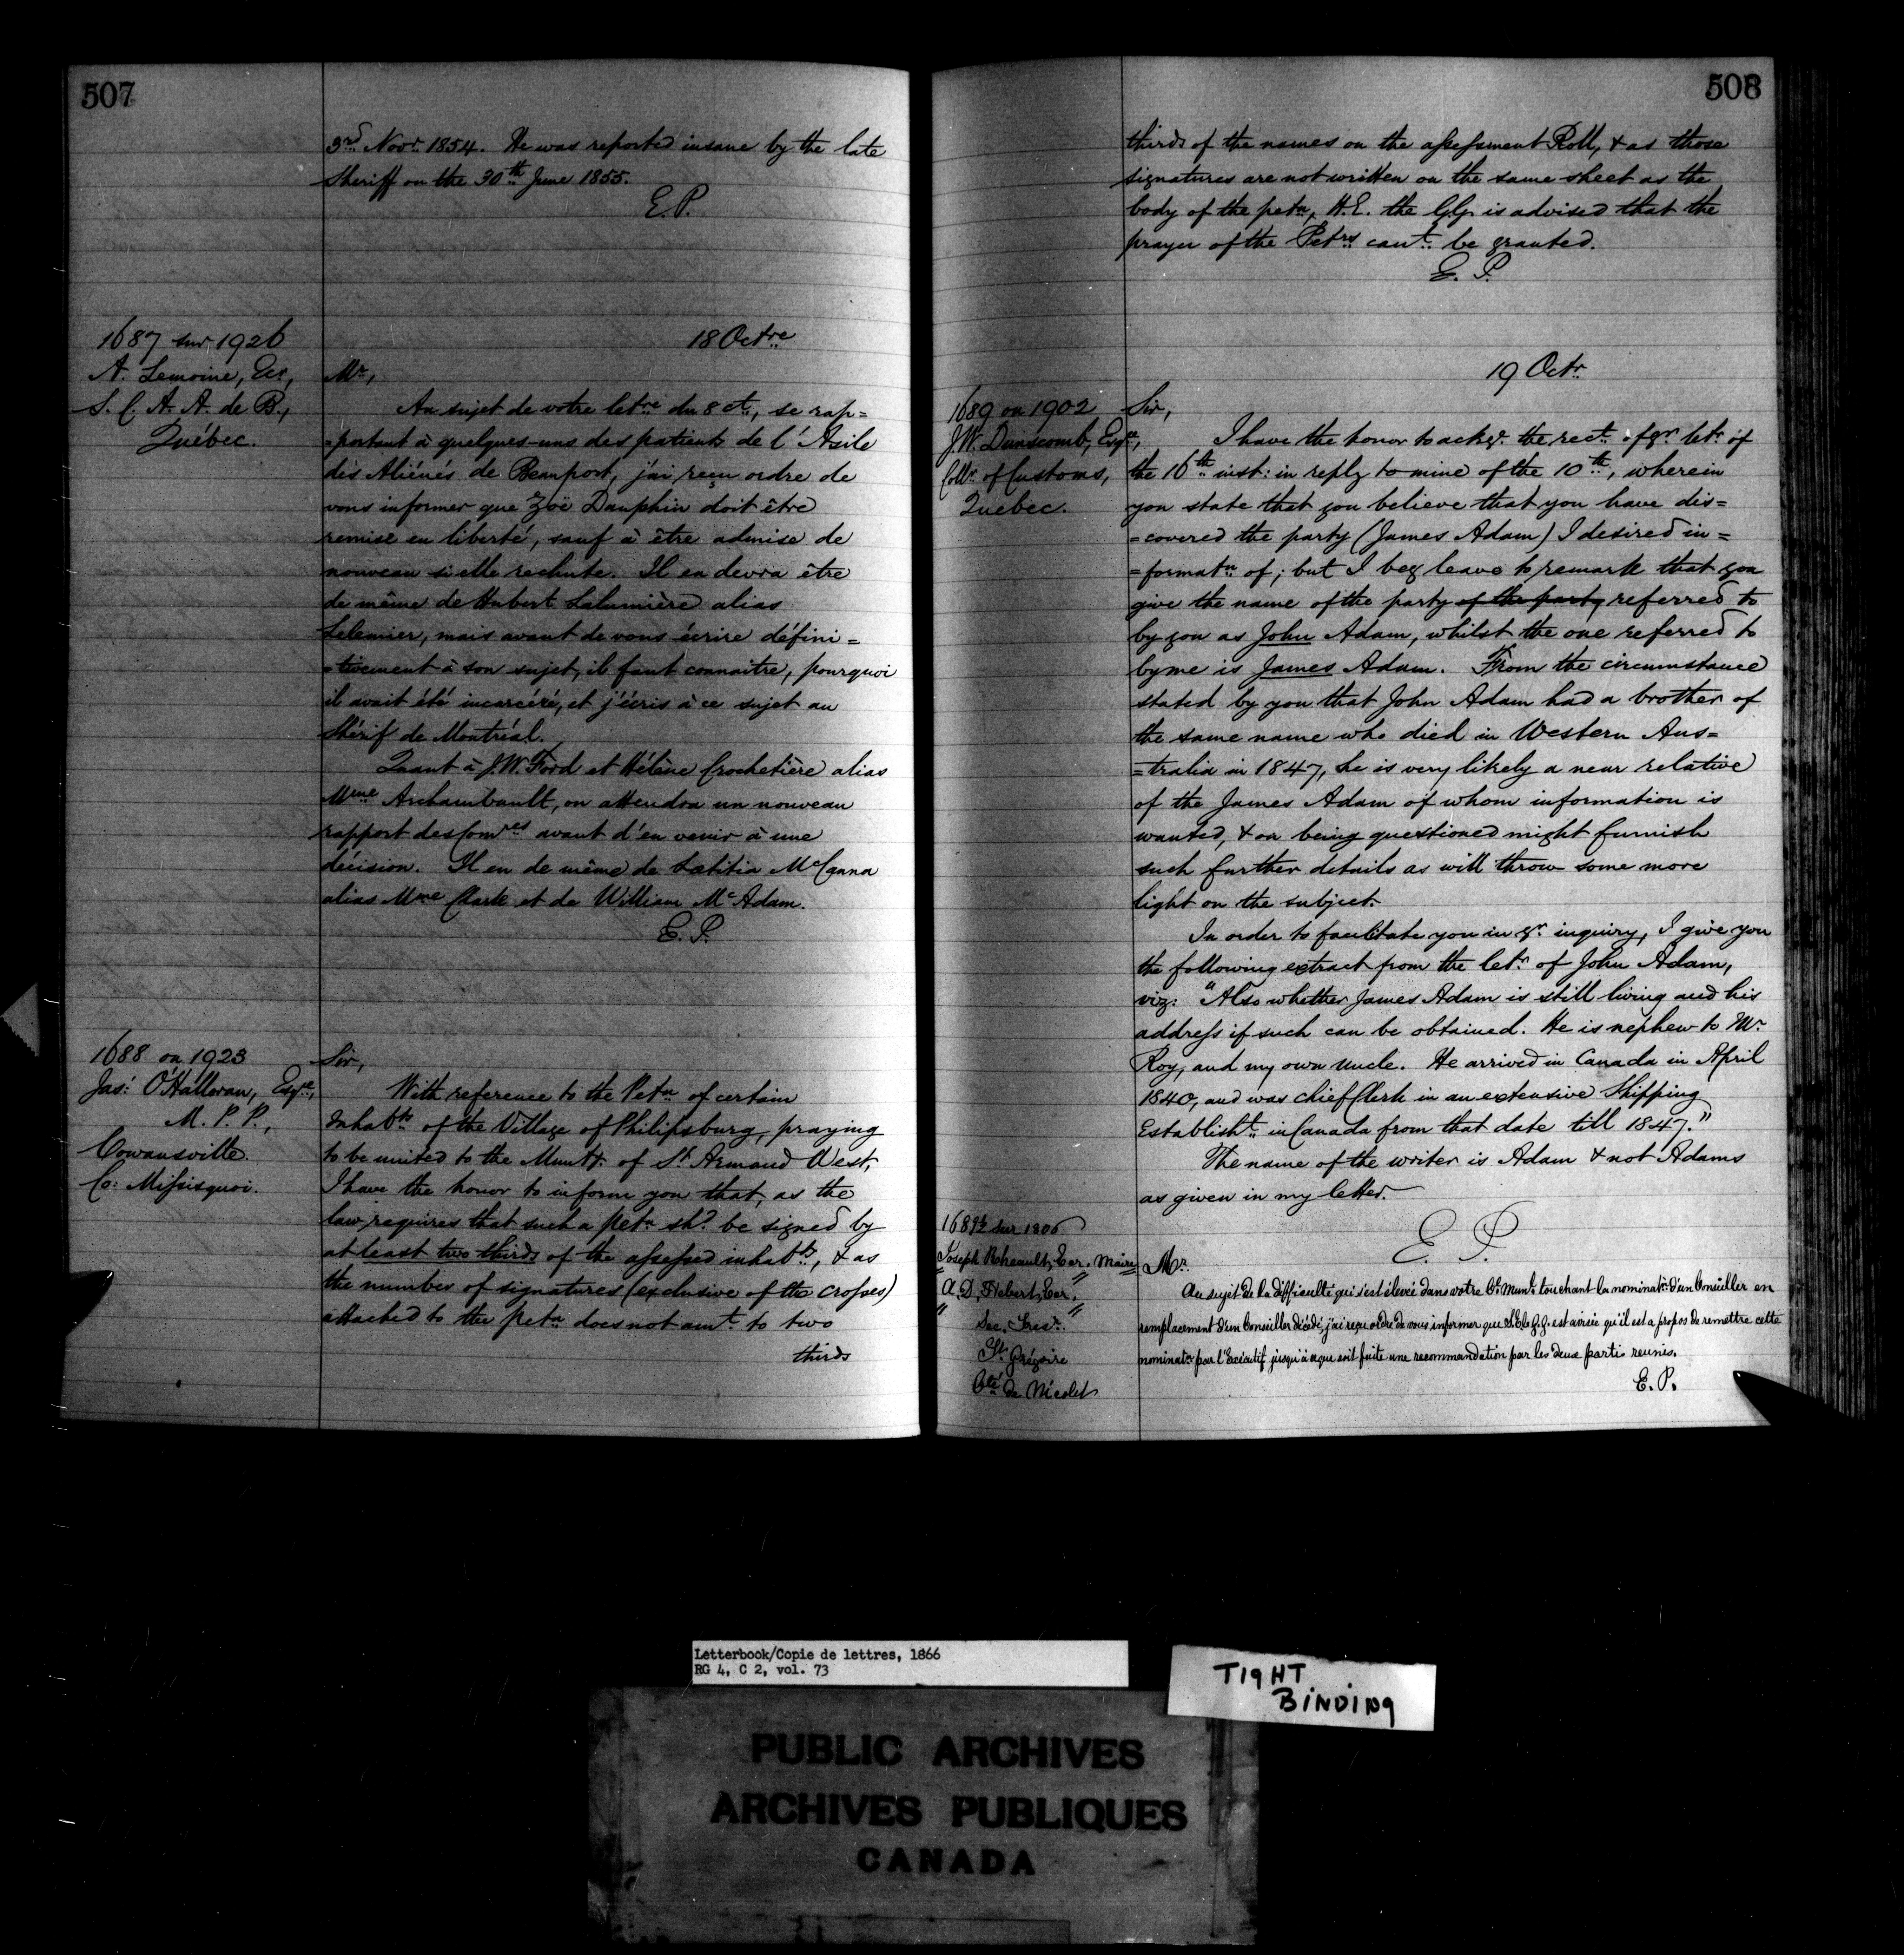 507
3rd Novr 1854. He was reported insane by the late
Sheriff on the 30th June 1855.
E.P.
18 Octre
1687 sur 1926
A. Lemoine, Ecr,
S. C. A. A. de B.,
Québec.
Mr,
Au sujet de votre letre du 8 ct, se rap=
=portant à quelques-uns des patients de l'Asile
des Aliénés de Beauport, j'ai reçu ordre de
vous informer que Zoë Dauphin doit être
remise en liberté, sauf à être admise de
nouveau si elle rechute. Il en devra être
de même de Hubert Lalumière alias
Lelemier, mais avant de vous écrire défini=
=tivement à son sujet, il faut connaître, pourquoi
il avait été incarcéré, et j'écris à ce sujet au
Shérif de Montréal.
Quant à J.W. Ford et Hélène Crochetière alias
Mme Archambault, on attendra un nouveau
rapport des Comres avant d'en venir à une
décision. Il en de même de Lætitia McCanna
alias Mme Clark et de William McAdam.
E.P.
1688 on 1923
Jas: O'Halloran, Esqre,
M. P. P.,
Cowansville.
Co: Missisquoi.
Sir,
With reference to the Petn of certain
Inhabts of the Village of Philipsburg, praying
to be united to the Munty. of St Armand West,
I have the honor to inform you that, as the
law requires that such a petn shd be signed by
at least two thirds of the assessed inhabts, & as
the number of signatures (exclusive of the crosses)
attached to the petn does not amt to two
thirds
508
thirds of the names on the assessment Roll, & as those
signatures are not written on the same sheet as the
body of the petn, H.E. the GG. is advised that the
prayer of the Petrs cant be granted.
E. P.
19 Octr
1689 on 1902
J.W. Dunscomb, Esqre,
Collr of Customs,
Quebec.
Sir,
I have the honor to ackge. the rect. of yr letr of
the 16th inst: in reply to mine of the 10th, wherein
you state that you believe that you have dis=
=covered the party (James Adam) I desired in=
=formatn of; but I beg leave to remark that you
give the name of the party of the party referred to
by you as John Adam, whilst the one referred to
by me is James Adam. From the circumstance
stated by you that John Adam had a brother of
the same name who died in Western Aus=
=tralia in 1847, he is very likely a near relative
of the James Adam of whom information is
wanted, & on being questioned might furnish
such further details as will throw some more
light on the subject.
In order to facilitate you in yr inquiry, I give you
the following extract from the letr of John Adam,
viz: "Also whether James Adam is still living and his
address if such can be obtained. He is nephew to Mr
Roy, and my own uncle. He arrived in Canada in April
1840, and was chief Clerk in an extensive Shipping
Establisht in Canada from that date till 1847."
The name of the writer is Adam & not Adams
as given in my letter.
E. P.
1689½ sur 1806
Joseph Rheault, Ecr. Maire
A.D. Hebert, Ecr.
Sec. Tresr.
St. Grégoire
Cté de Nicolet
Mr.
Au sujet de la difficulté qui s'est élevée dans votre Cl. Munl. touchant la nominatn. d'un Conseiller en
remplacement d'un Conseiller décédé, j'ai reçu ordre de vous informer que S.E. le G.G. est avisée qu'il est a propos de remettre cette
nominatn par l'Exécutif jusqu'à ce que soit faite une recommandation par les deux partis reunies.
E. P.
Letterbook/Copie de lettres, 1866
RG 4, C 2, vol. 73
TIGHT
BINDING
PUBLIC ARCHIVES
ARCHIVES PUBLIQUES
CANADA